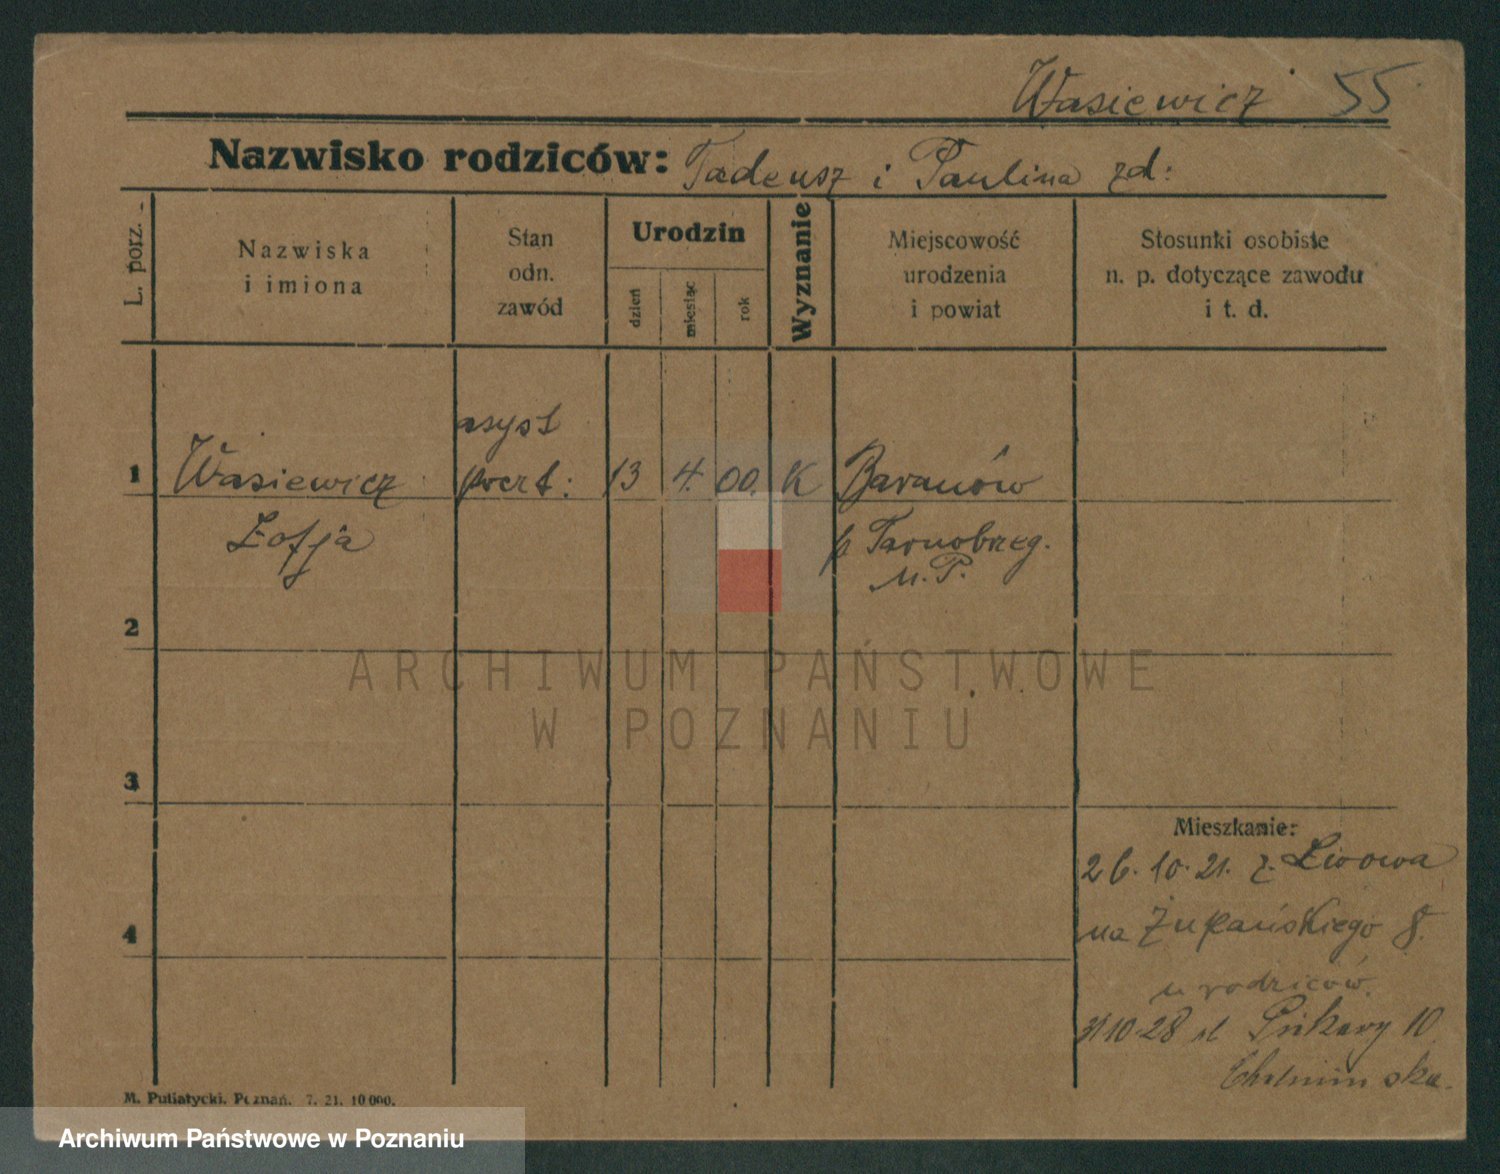 Wasiewicz 55
Nazwisko rodziców: Tadeusz i Paulina zd:
L. porz.
Nazwiska
i imiona
Stan
odn.
zawód
Urodzin
dzień
miesiąc
rok
Wyznanie
Miejscowość
urodzenia
i powiat
Stosunki osobiste
n. p. dotyczące zawodu
i t. d.
asyst
1 Wasiewicz 13 4. 00. K Baranów
Zofja
p Tarnobrzeg.
M.P.
2
3
4
ARCHIWUM PAŃSTWOWE
W POZNANIU
Mieszkanie:
26.10.21. z Lwowa
na Żupańskiego 8.
u rodziców.
31 10 28 10
M. Putiatycki. Poznań. 7. 21. 10 000.
Archiwum Państwowe w Poznaniu